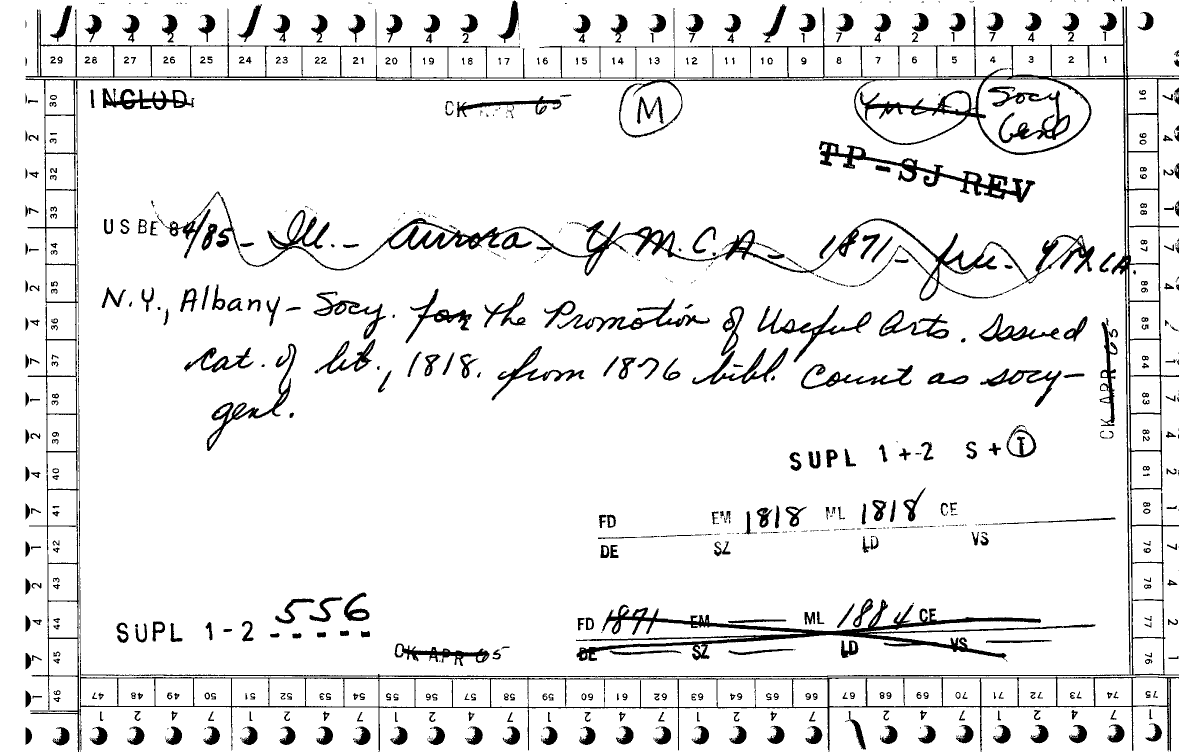 7 4 2 1 7 4 2 1 7 4 2 1 4 2 1 7 4 2 1 7 4 2 1 7 4 2 1
29 28 27 26 25 24 23 22 21 20 19 18 17 16 15 14 13 12 11 10 9 8 7 6 5 4 3 2 1
INCLUD. CK APR 65 M YMCA Socy Genl
TP-SJ REV
USBE 84/85 - Ill. - Aurora - Y.M.C.A. - 1871 - free - Y.M.C.A.
N.Y., Albany - Socy. for the Promotion of Useful Arts. Issued
cat. of lib., 1818. from 1876 bibl. Count as socy-
genl.
CK APR 65
SUPL 1+2 S+I
FD EM 1818 ML 1818 CE
DE SZ LD VS
SUPL 1-2 556
FD 1871 EM — ML 1884 CE —
DE — SZ — LD — VS —
CK APR 65
30 31 32 33 34 35 36 37 38 39 40 41 42 43 44 45 46
91 90 89 88 87 86 85 84 83 82 81 80 79 78 77 76
47 48 49 50 51 52 53 54 55 56 57 58 59 60 61 62 63 64 65 66 67 68 69 70 71 72 73 74 75